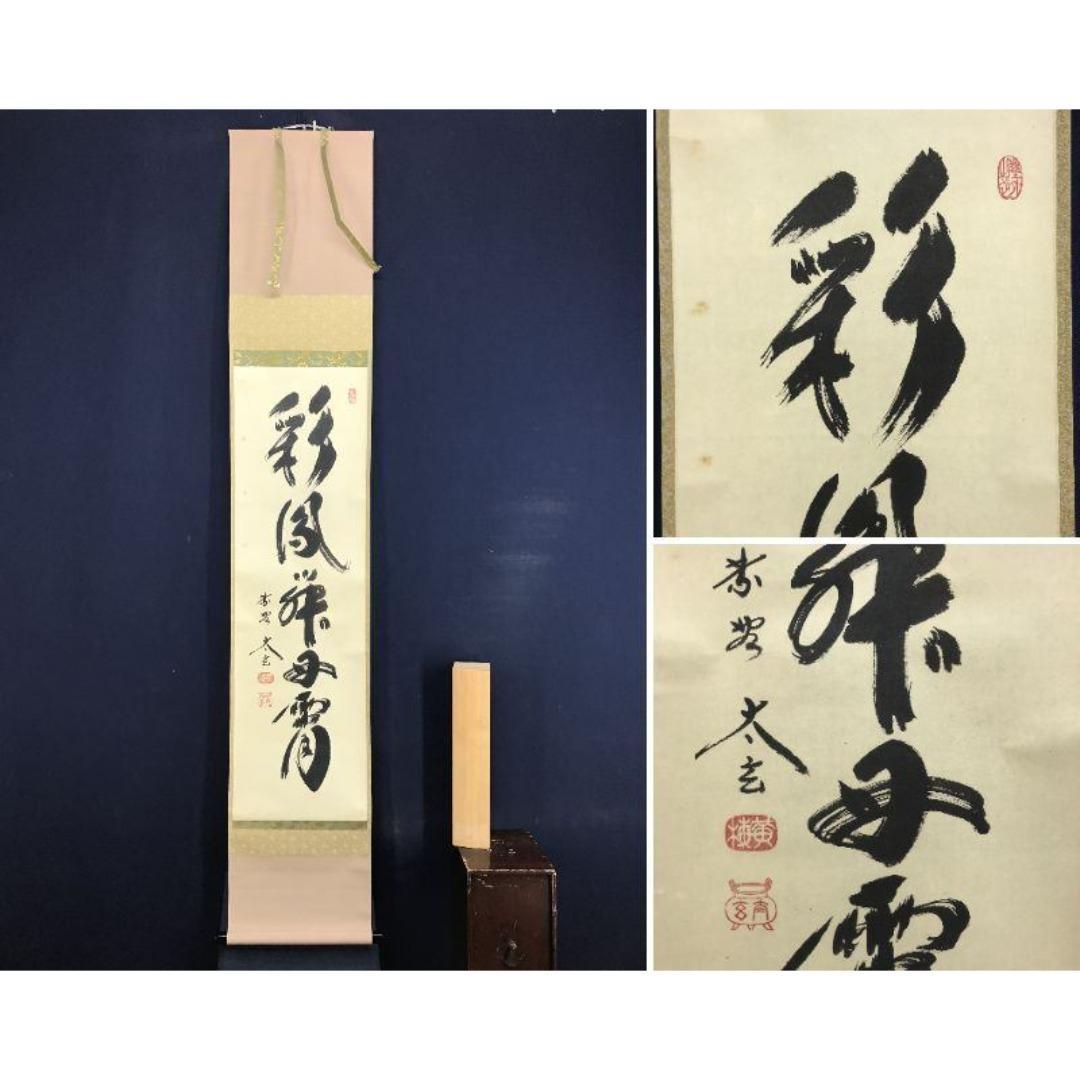 彩鳳舞丹霄
紫野 太玄
黄梅